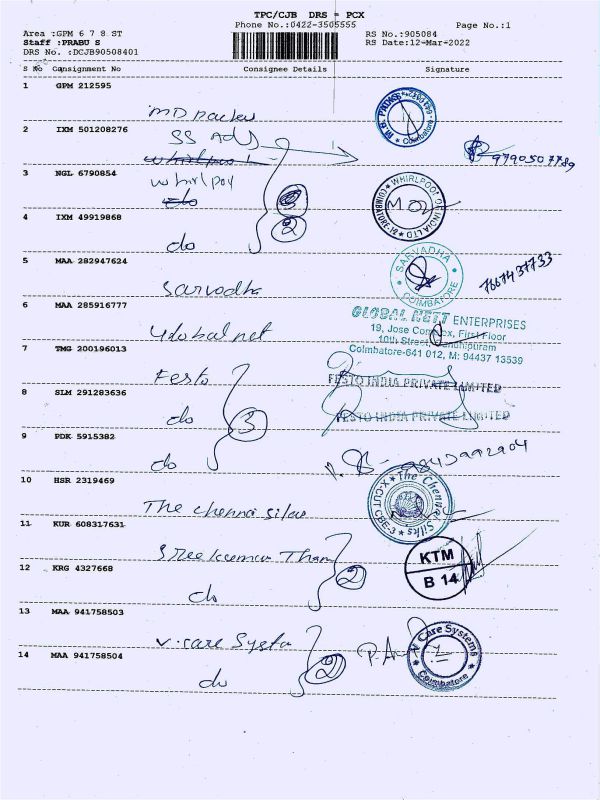 TPC/CJB DRS = PCX
Phone No.:0422-3505555 Page No.:1
Area :GPM 6 7 8 ST RS No.:905084
Staff :PRABU S RS Date:12-Mar-2022
DRS No. :DCJB90508401
S No Consignment No Consignee Details Signature
1 GPM 212595
Coimbatore
2 IXM 501208276 SS Ads
9790507789
3 NGL 6790854 whirlpool
WHIRLPOOL OF INDIA LTD COIMBATORE-18
4 IXM 49919868 do 2
5 MAA 282947624 Sarvodha
SARVADHA COIMBATORE
7667437733
6 MAA 285916777 Global net
GLOBAL NETT ENTERPRISES
19, Jose Complex, First Floor
10th Street, Gandhipuram
Coimbatore-641 012, M: 94437 13539
7 TMG 200196013 Festo
FESTO INDIA PRIVATE LIMITED
8 SLM 291283636 do 3
FESTO INDIA PRIVATE LIMITED
9 PDK 5915382 do
9843992904
10 HSR 2319469 The Chennai Silks
The Chennai Silks X-CUT CBE-3
11 KUR 608317631 Sreekumar Thanga
KTM
B 14
12 KRG 4327668 do 2
13 MAA 941758503 V-care Systa
V Care Systems Coimbatore
14 MAA 941758504 do 2